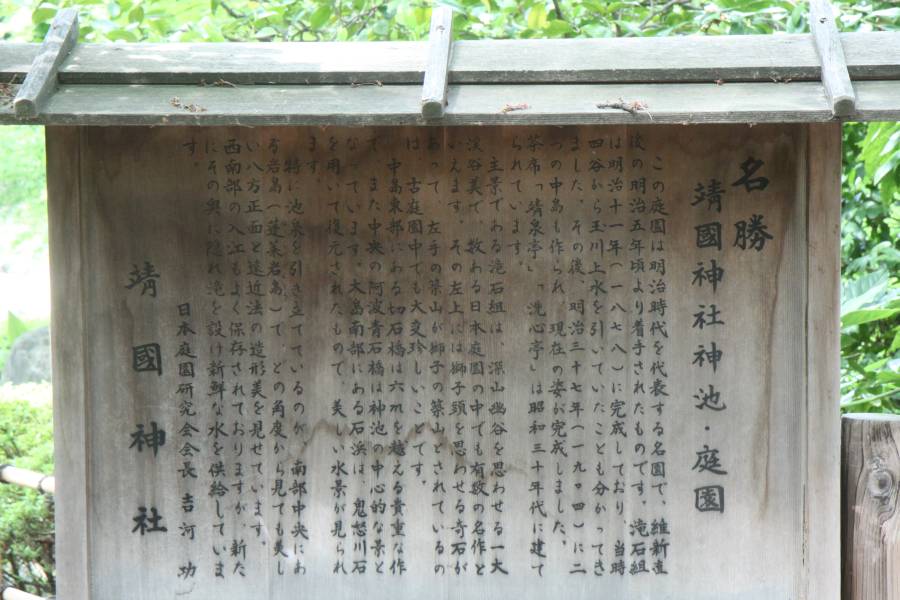 名勝
靖國神社神池・庭園
この庭園は明治時代を代表する名園で、維新直
後の明治五年頃より着手されたものです。滝石組
は明治十一年(一八七八)に完成しており、当時
四谷から玉川上水を引いていたことも分かってき
ました。その後、明治三十七年(一九〇四)に二
つの中島も作られ、現在の姿が完成しました。
茶席「靖泉亭」「洗心亭」は昭和三十年代に建て
られています。
主景である滝石組は、深山幽谷を思わせる一大
渓谷美で、数ある日本庭園の中でも有数の名作と
いえます。その左上には獅子頭を思わせる奇石が
あって、左手の築山が獅子の築山とされているの
は、古庭園中でも大変珍しいことです。
中島東部にある切石橋は六㍍を越える貴重な作
で、また中央の阿波青石橋は神池の中心的な景と
なっています。大島南部にある石浜は、鬼怒川石
を用いて復元されたもので、美しい水景が見られ
ます。
特に池泉を引き立てているのが、南部中央にあ
る岩島(蓬莱岩島)で、どの角度から見ても美し
い八方正面と遠近法の造形美を見せています。
西南部の入江もよく保存されておりますが、新た
にその奥に隠れ滝を設け新鮮な水を供給していま
す。
日本庭園研究会会長 吉河 功
靖國神社